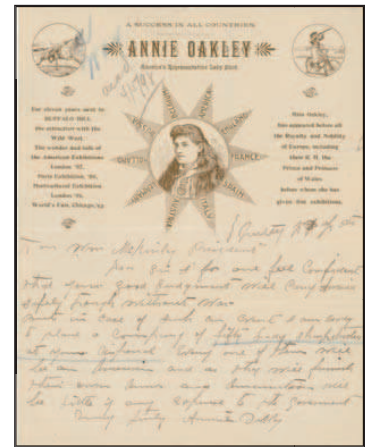 A SUCCESS IN ALL COUNTRIES.
ANNIE OAKLEY
America's Representative Lady Shot.
For eleven years next to
BUFFALO BILL
the attraction with the
Wild West.
The wonder and talk of
the American Exhibitions
London '87,
Paris Exposition, '89,
Horticultural Exhibition
London '92,
World's Fair, Chicago, '93
Miss Oakley,
has appeared before all
the Royalty and Nobility
of Europe, including
their R. H. the
Prince and Princess
of Wales
before whom she has
given five exhibitions.
AMERICA
ENGLAND
FRANCE
SPAIN
ITALY
Hon Wm McKinley President
Dear Sir I for one feel Confident
that your good judgment will carry America
safely through without war
But in case of such an event I am ready
to place a Company of fifty lady sharpshooters
at your disposal. Every one of them will
be an American and as they will furnish
their own Arms and Ammunition will
be little if any expense to the government
Very truly Annie Oakley